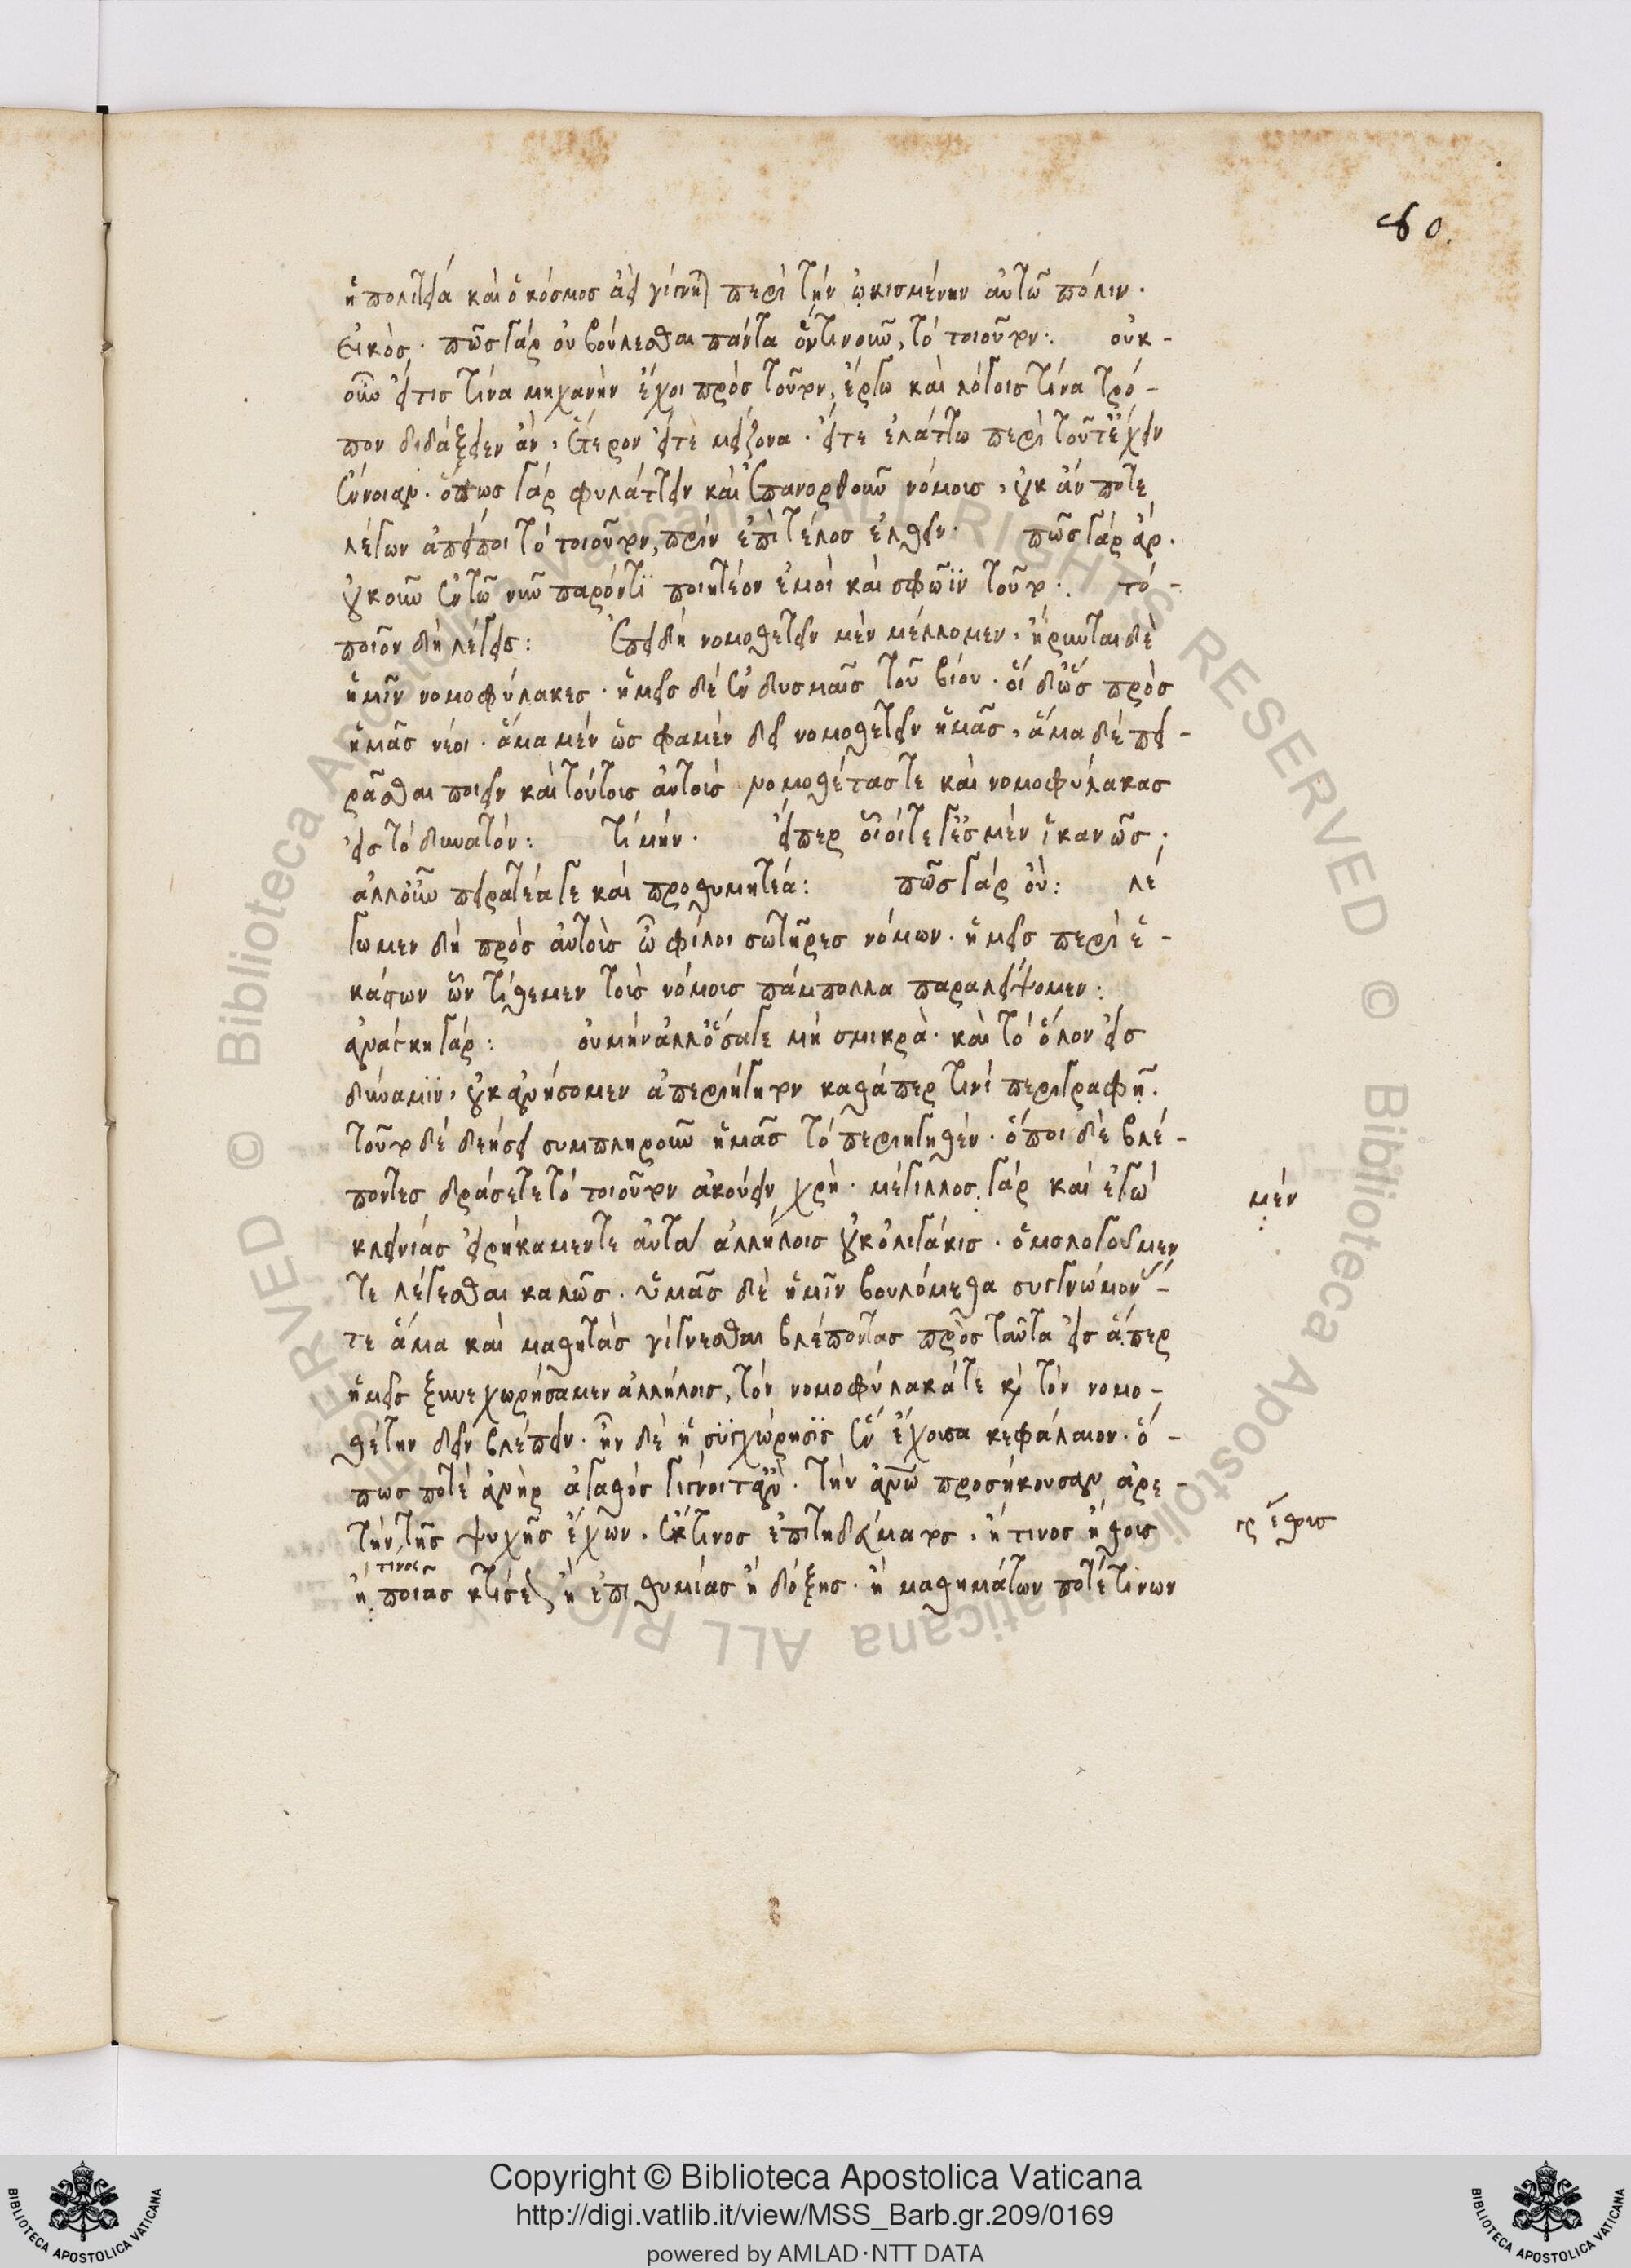 80.
ἡ πολιτεία καὶ ὁ κόσμος ἀεὶ γίγνηται περὶ τὴν ᾠκισμένην αὐτῷ πόλιν·
εἰκός· πῶς γὰρ οὐ βούλεσθαι πάντα ὁντινοῦν, τὸ τοιοῦτον: οὐκ-
οῦν εἴ τις τινὰ μηχανὴν ἔχοι πρὸς τοῦτον, ἔργω καὶ λόγοις τίνα τρό-
πον διδάξειεν ἂν, ἕτερον εἴτε μείζονα· εἴτε ἐλάττω περὶ τοῦτ' ἔχειν
ἔννοιαν· ὅπως γὰρ φυλάττειν καὶ ἐπανορθοῦν νόμοις, οὐκ ἄν ποτε
λέγων ἀπείποι τὸ τοιοῦτον, πρὶν ἐπὶ τέλος ἐλθεῖν· πῶς γὰρ ἄρ.
οὐκοῦν ἐν τῷ νῦν παρόντϊ ποιητέον ἐμοὶ καὶ σφῶϊν τοῦτο·. τὸ-
ποῖον δὴ λέγεις: ἐπειδὴ νομοθετεῖν μὲν μέλλομεν, ᾕρηνται δὲ
ἡμῖν νομοφύλακες· ἡμεῖς δὲ ἐν δυσμαῖς τοῦ βίου· οἱ δ' ὡς πρὸς
ἡμᾶς νέοι· ἅμα μὲν ὥς φαμὲν δεῖ νομοθετεῖν ἡμᾶς, ἅμα δὲ πει-
ρᾶσθαι ποιεῖν καὶ τούτοις αὐτοὶς νομοθέτας τε καὶ νομοφύλακας
εἰς τὸ δυνατόν: τί μήν· εἴπερ οἷοί τέ γ' ἐσμὲν ἱκανῶς;
ἀλλ' οὖν πειρατέα γε καὶ προθυμητέα: πῶς γὰρ οὐ: λέ
γωμεν δὴ πρὸς αὐτοὶς ὦ φίλοι σωτῆρες νόμων· ἡμεῖς περὶ ἑ-
κάστων ὧν τίθεμεν τοὶς νόμοις πάμπολλα παραλείψομεν:
ἀνάγκη γάρ: οὐ μὴν ἀλλ' ὅσα γε μὴ σμικρὰ· καὶ τὸ ὅλον εἰς
δύναμϊν, οὐκ ἀνήσομεν ἀπεριήγητον καθάπερ τινὶ περιγραφῇ.
τοῦτο δὲ δεήσει συμπληροῦν ἡμᾶς τὸ περιηγηθέν· ὅποι δὲ βλέ-
ποντες δράσετε τὸ τοιοῦτον ἀκούειν χρὴ· μέγιλλος γὰρ καὶ ἐγὼ
μέν
κλεινίας εἰρήκαμέν τε αὐτὰ ἀλλήλοις οὐκ ὀλιγάκις· ὁμολογοῦμεν
τε λέγεσθαι καλῶς· ὑμᾶς δὲ ἡμῖν βουλόμεθα συγγνώμονάς-
τε ἅμα καὶ μαθητὰς γίγνεσθαι βλέποντας πρὸς ταῦτα εἰς ἅπερ
ἡμεῖς ξυνεχωρήσαμεν ἀλλήλοις, τὸν νομοφύλακά τε κ̀ τὸν νομο-
θέτην δεῖν βλέπειν· ἦν δὲ ἡ σϋγχώρησϊς ἓν ἔχουσα κεφάλαιον· ὅ-
πως ποτὲ ἀνὴρ ἀγαθὸς γίγνοιτ' ἂν· τὴν ἀνθρώπῳ προσήκουσαν ἀρε-
τὴν τῆς ψυχῆς ἔχων· ἔκ τινος ἐπιτηδεύματος, ἤ τινος ἤθους
ἢ ποιᾶς κτήσεως ἢ ἐπιθυμίας ἢ δόξης· ἢ μαθημάτων ποτέ τινων
τινος